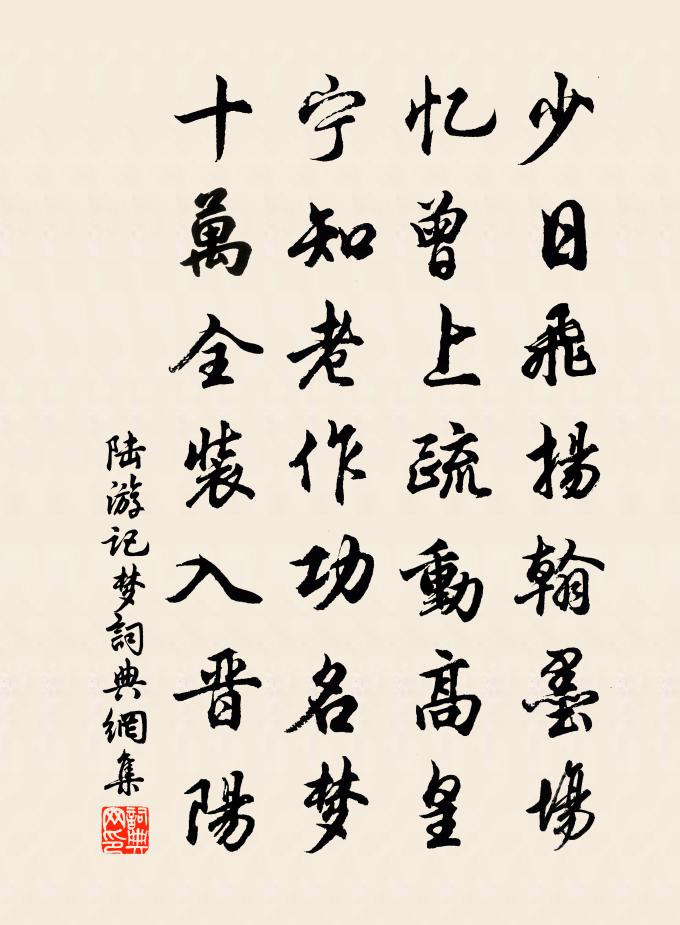 少日飛揚翰墨場
忆曾上疏動高皇
宁知老作功名梦
十萬全装入晋陽
陆游记梦詞典網集
詞典网印